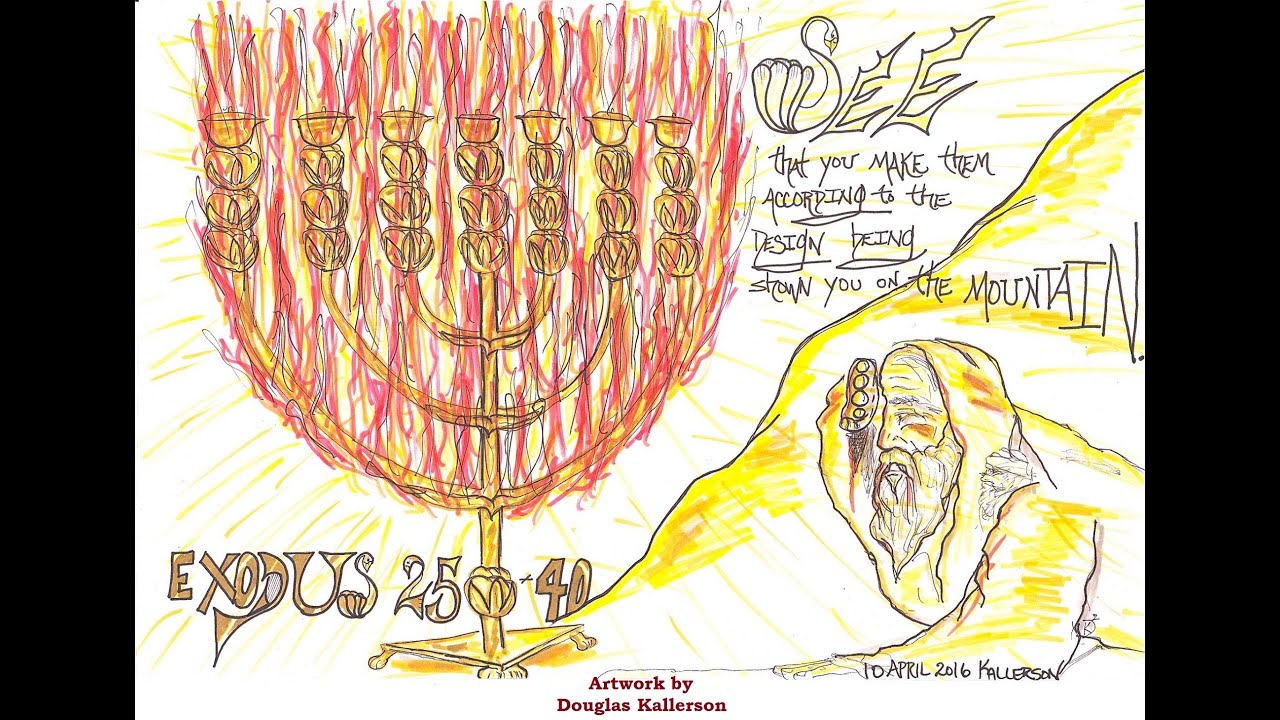 SEE
that you MAKE them
ACCORDING to the
DESIGN being
shown you on the MOUNTAIN.
EXODUS 25:40
10 APRIL 2016 KALLERSON
Artwork by
Douglas Kallerson